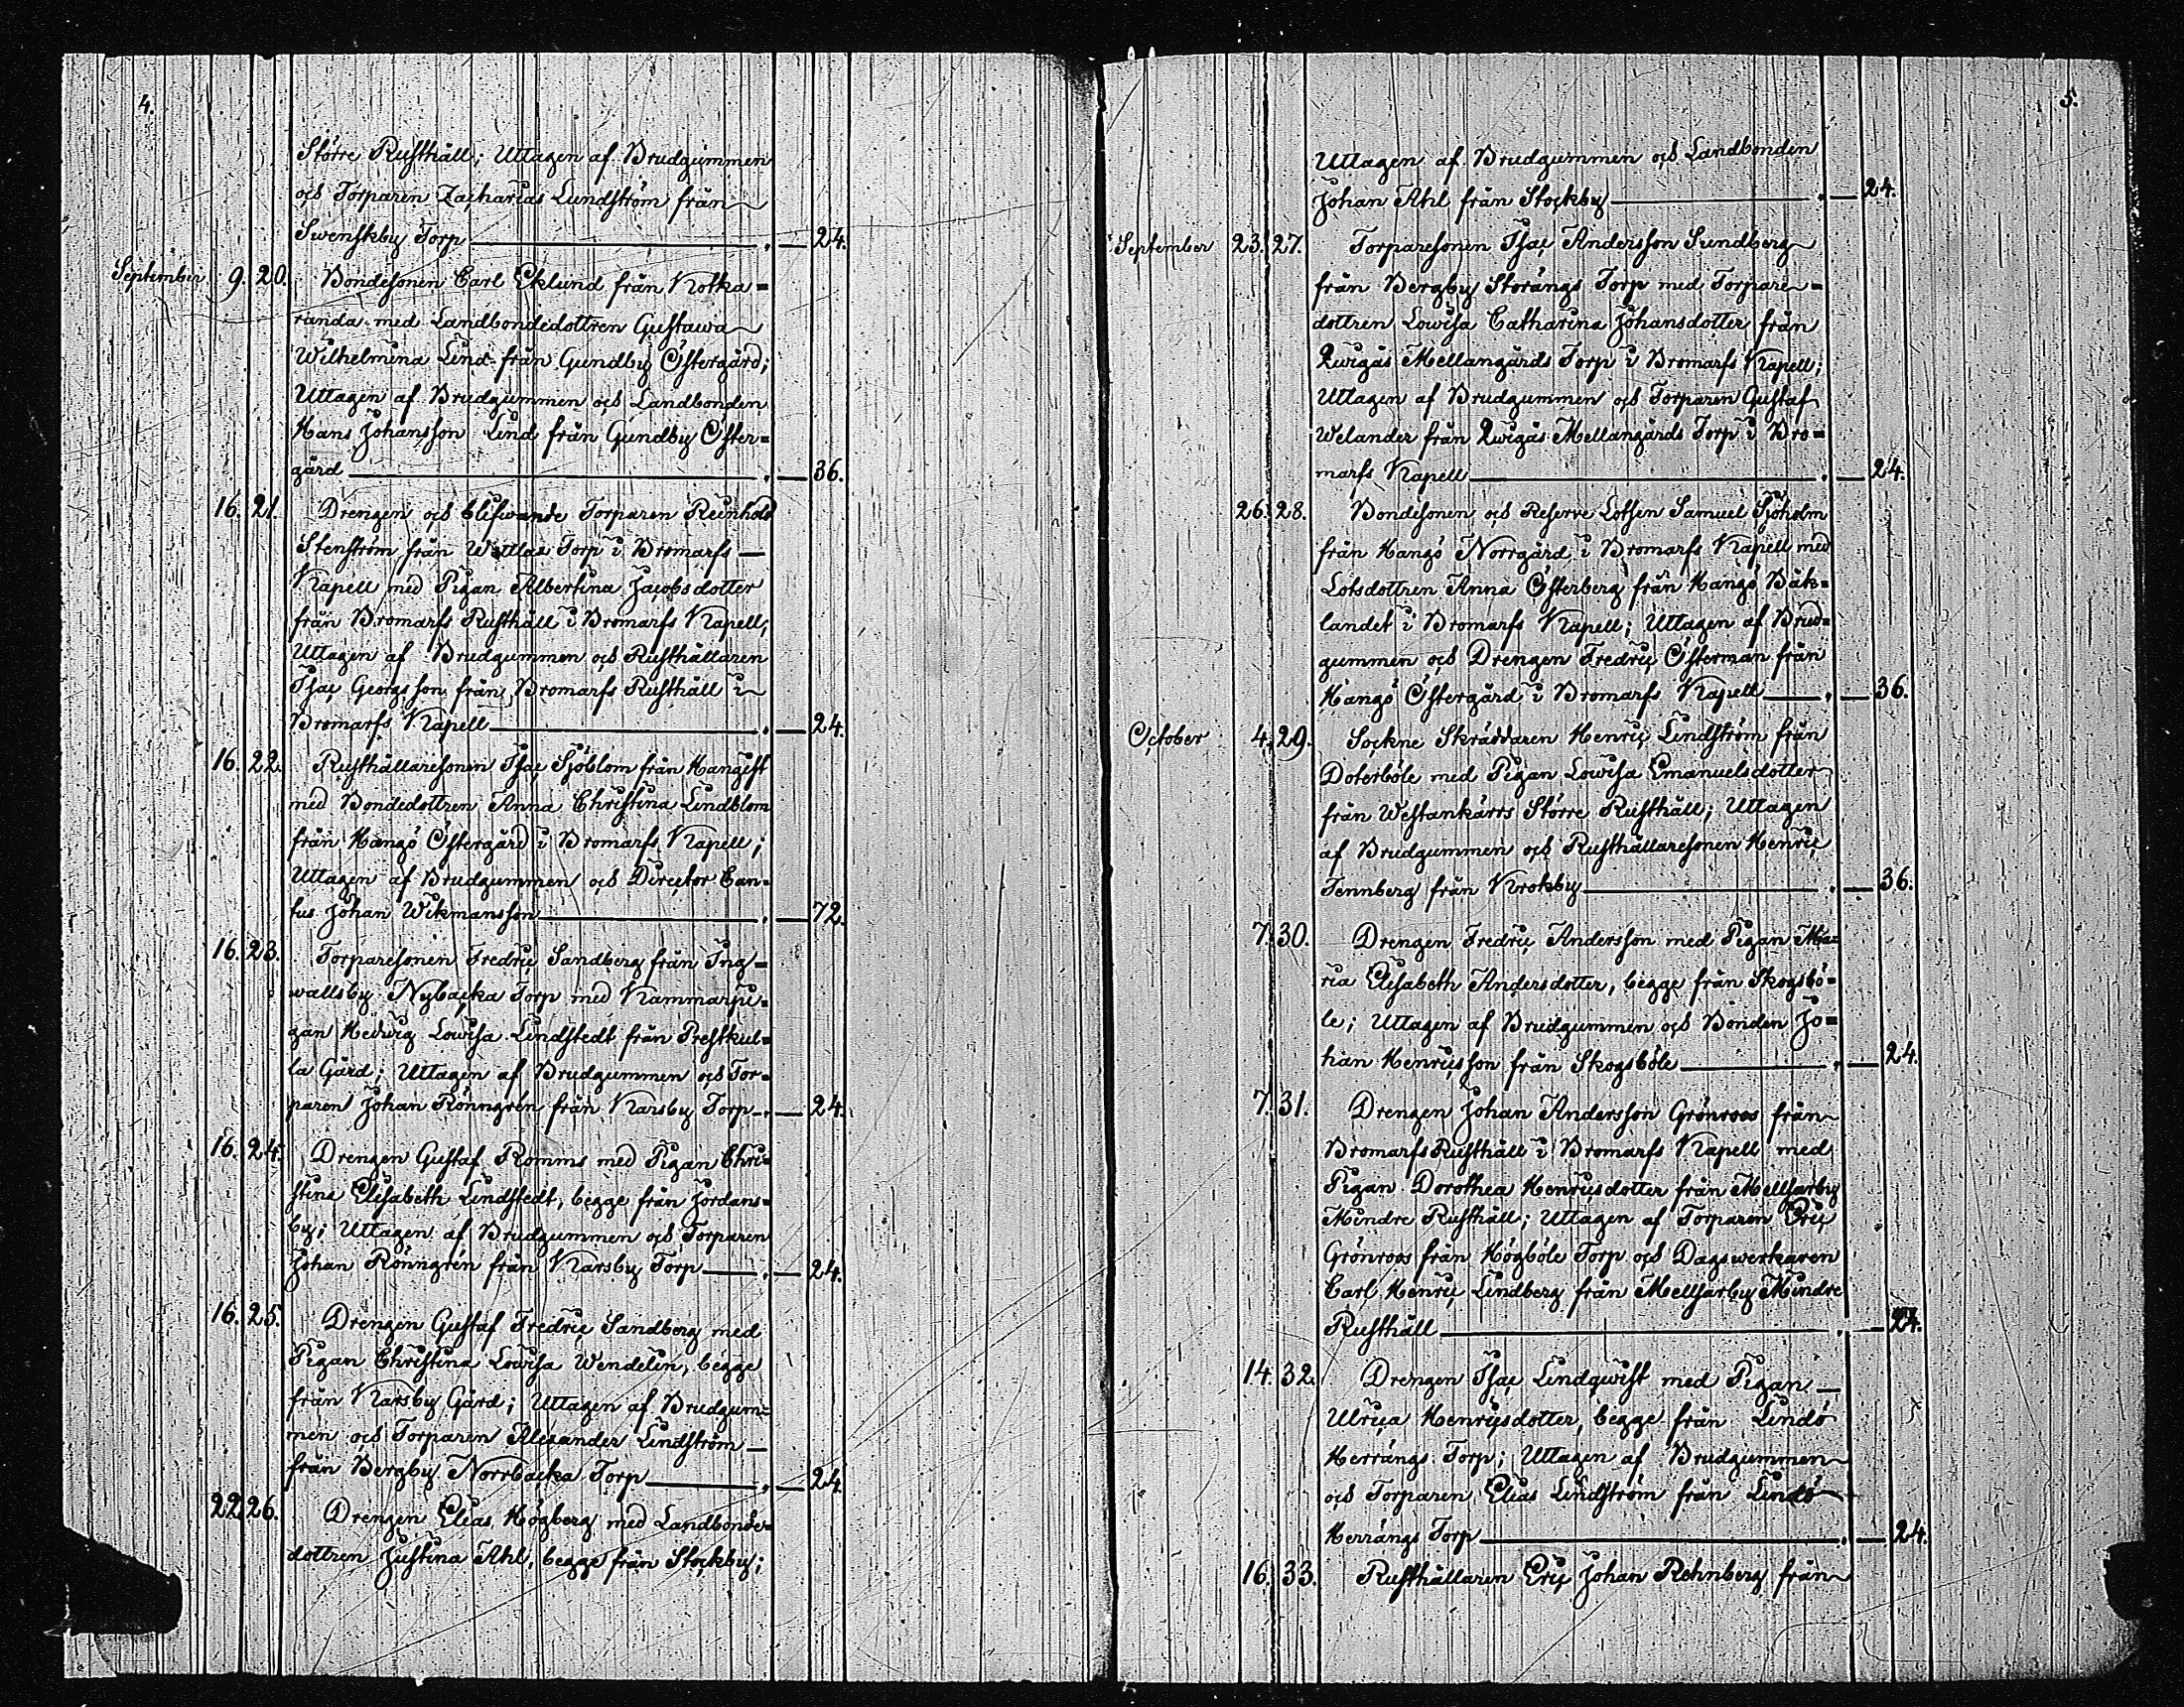 4.
Större Rusthåll; Uttagen af Brudgummen
och Torparen Zacharias Lundström från
Swenskby Torp 24.
September 9. 20. Bondesonen Carl Eklund från Kotka=
randa med Landbondedottren Gustawa
Wilhelmina Lind från Gundby Östergård;
Uttagen af Brudgummen och Landbonden
Hans Johansson Lind från Gundby Öster=
gård 36.
16. 21. Drengen och blifwande Torparen Reinhold
Stenström från Wättlax Torp i Bromarfs
Kapell med Pigan Albertina Jacobsdotter
från Bromarfs Rusthåll i Bromarfs Kapell;
Uttagen af Brudgummen och Rusthållaren
Isac Georgsson från Bromarfs Rusthåll i
Bromarfs Kapell 24.
16. 22. Rusthållaresonen Isac Sjöblom från Hangist
med Bondedottren Anna Christina Lindblom
från Hangö Östergård i Bromarfs Kapell;
Uttagen af Brudgummen och Director Can=
tus Johan Wikmansson 72.
16. 23. Torparesonen Fredric Sandberg från Ing=
wallsby Nybacka Torp med Kammarpi=
gan Hedwig Lowisa Lindstedt från Prestkul=
la Gård; Uttagen af Brudgummen och Tor=
paren Johan Rönngrén från Karsby Torp 24.
16. 24. Drengen Gustaf Romms med Pigan Chri=
stina Elisabeth Lindstedt, begge från Jordans=
by; Uttagen af Brudgummen och Torparen
Johan Rönngrén från Karsby Torp 24.
16. 25. Drengen Gustaf Fredric Sandberg med
Pigan Christina Lowisa Wendelin, begge
från Karsby Gård; Uttagen af Brudgum=
men och Torparen Alexander Lindström
från Bergby Norrbacka Torp 24.
22. 26. Drengen Elias Högberg med Landbonde=
dottren Justina Ahl, begge från Stockby;
5.
Uttagen af Brudgummen och Landbonden
Johan Ahl från Stockby 24.
September 23. 27. Torparesonen Isac Andersson Sundberg
från Bergby Storängs Torp med Torpare=
dottren Lowisa Catharina Johansdotter från
Qwigäs Mellangårds Torp i Bromarfs Kapell;
Uttagen af Brudgummen och Torparen Gustaf
Welander från Qwigäs Mellangårds Torp i Bro=
marfs Kapell 24.
26. 28. Bondesonen och Reserve Lotsen Samuel Sjöholm
från Hangö Norrgård i Bromarfs Kapell med
Lotsdottren Anna Österberg från Hangö Bäk=
landet i Bromarfs Kapell; Uttagen af Brud=
gummen och Drengen Fredric Österman från
Hangö Östergård i Bromarfs Kapell 36.
October 4. 29. Sockne Skräddaren Henric Lindström från
Doterböle med Pigan Lowisa Emanuelsdotter
från Westankärrs Större Rusthåll; Uttagen
af Brudgummen och Rusthållaresonen Henric
Tennberg från Krokby 36.
7. 30. Drengen Fredric Andersson med Pigan Ma=
ria Elisabeth Andersdotter, begge från Skogsbö=
le; Uttagen af Brudgummen och Bonden Jo=
han Henricsson från Skogsböle 24.
7. 31. Drengen Johan Andersson Grönroos från
Bromarfs Rusthåll i Bromarfs Kapell med
Pigan Dorothea Henricsdotter från Mellsarby
Mindre Rusthåll; Uttagen af Torparen Eric
Grönroos från Högböle Torp och Dagswerkaren
Carl Henric Lindberg från Mellsarby Mindre
Rusthåll 24.
14. 32. Drengen Isac Lindqwist med Pigan
Ulrica Henricsdotter, begge från Lindö
Herrängs Torp; Uttagen af Brudgummen
och Torparen Elias Lindström från Lindö
Herrängs Torp 24.
16. 33. Rusthållaren Eric Johan Rehnberg från